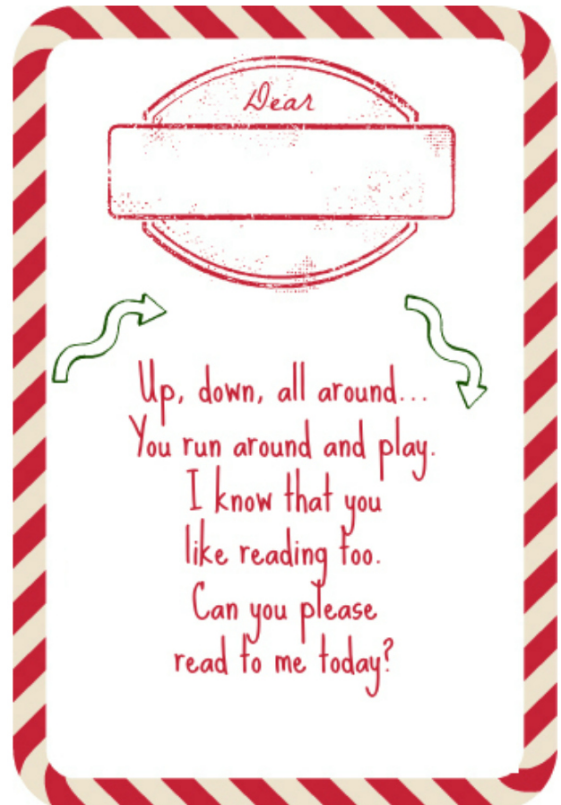 Dear
Up, down, all around...
You run around and play.
I know that you
like reading too.
Can you please
read to me today?